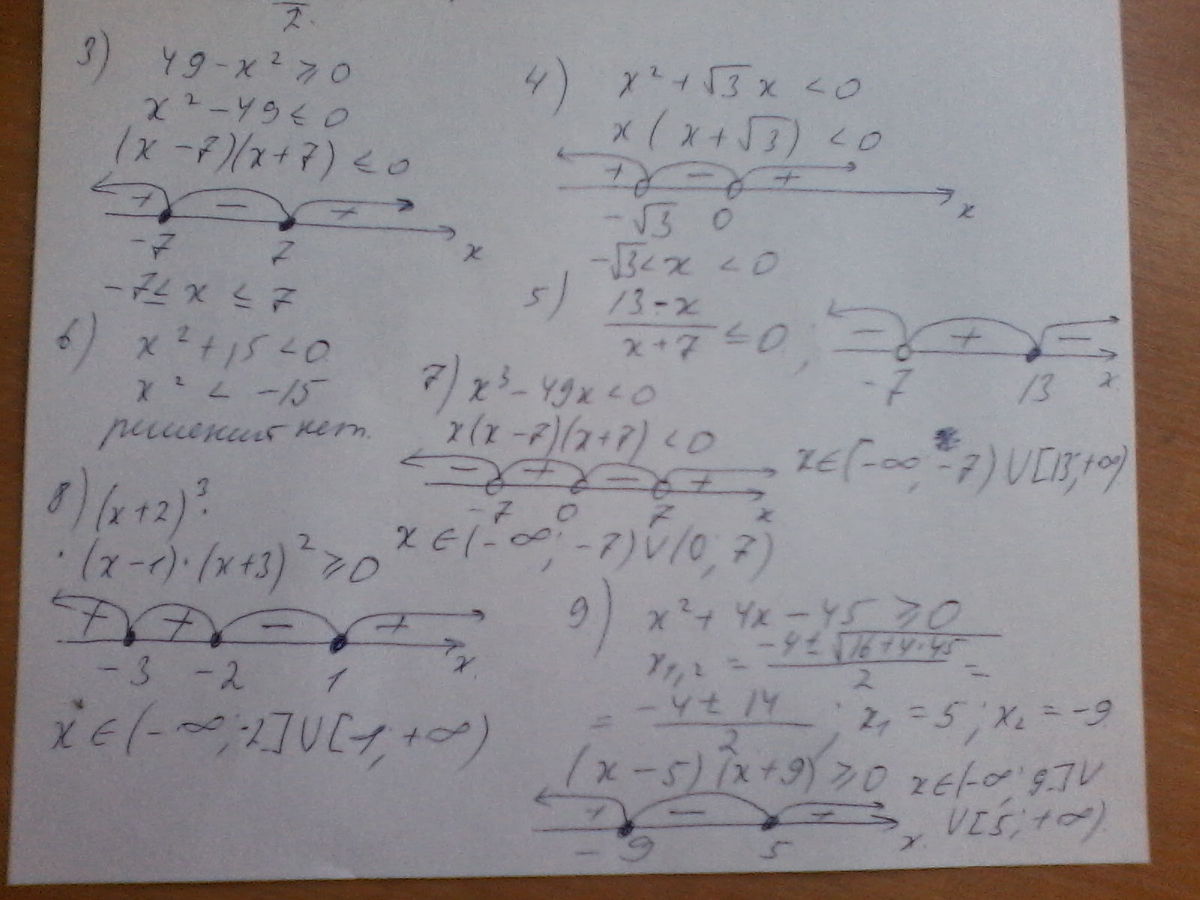 2.
3) 49-x² ≥ 0
x² - 49 ≤ 0
(x-7)(x+7) ≤ 0
+ - +
-7 7 x
-7 ≤ x ≤ 7
4) x² + √3 x < 0
x(x+√3) < 0
+ - +
-√3 0 x
-√3 < x < 0
5) (13-x)/(x+7) ≤ 0;
- + -
-7 13 x
x∈(-∞; -7)∪[13; +∞)
6) x² + 15 < 0
x² < -15
решений нет.
7) x³ - 49x < 0
x(x-7)(x+7) < 0
- + - +
-7 0 7 x
x∈(-∞; -7)∪(0; 7)
8) (x+2)³·
·(x-1)·(x+3)² ≥ 0
+ + - +
-3 -2 1 x
x∈(-∞; -2]∪[1; +∞)
9) x² + 4x - 45 ≥ 0
x₁,₂ = (-4±√(16+4·45))/2 =
= (-4±14)/2; x₁ = 5; x₂ = -9
(x-5)(x+9) ≥ 0
+ - +
-9 5 x
x∈(-∞; 9]∪
∪[5; +∞)